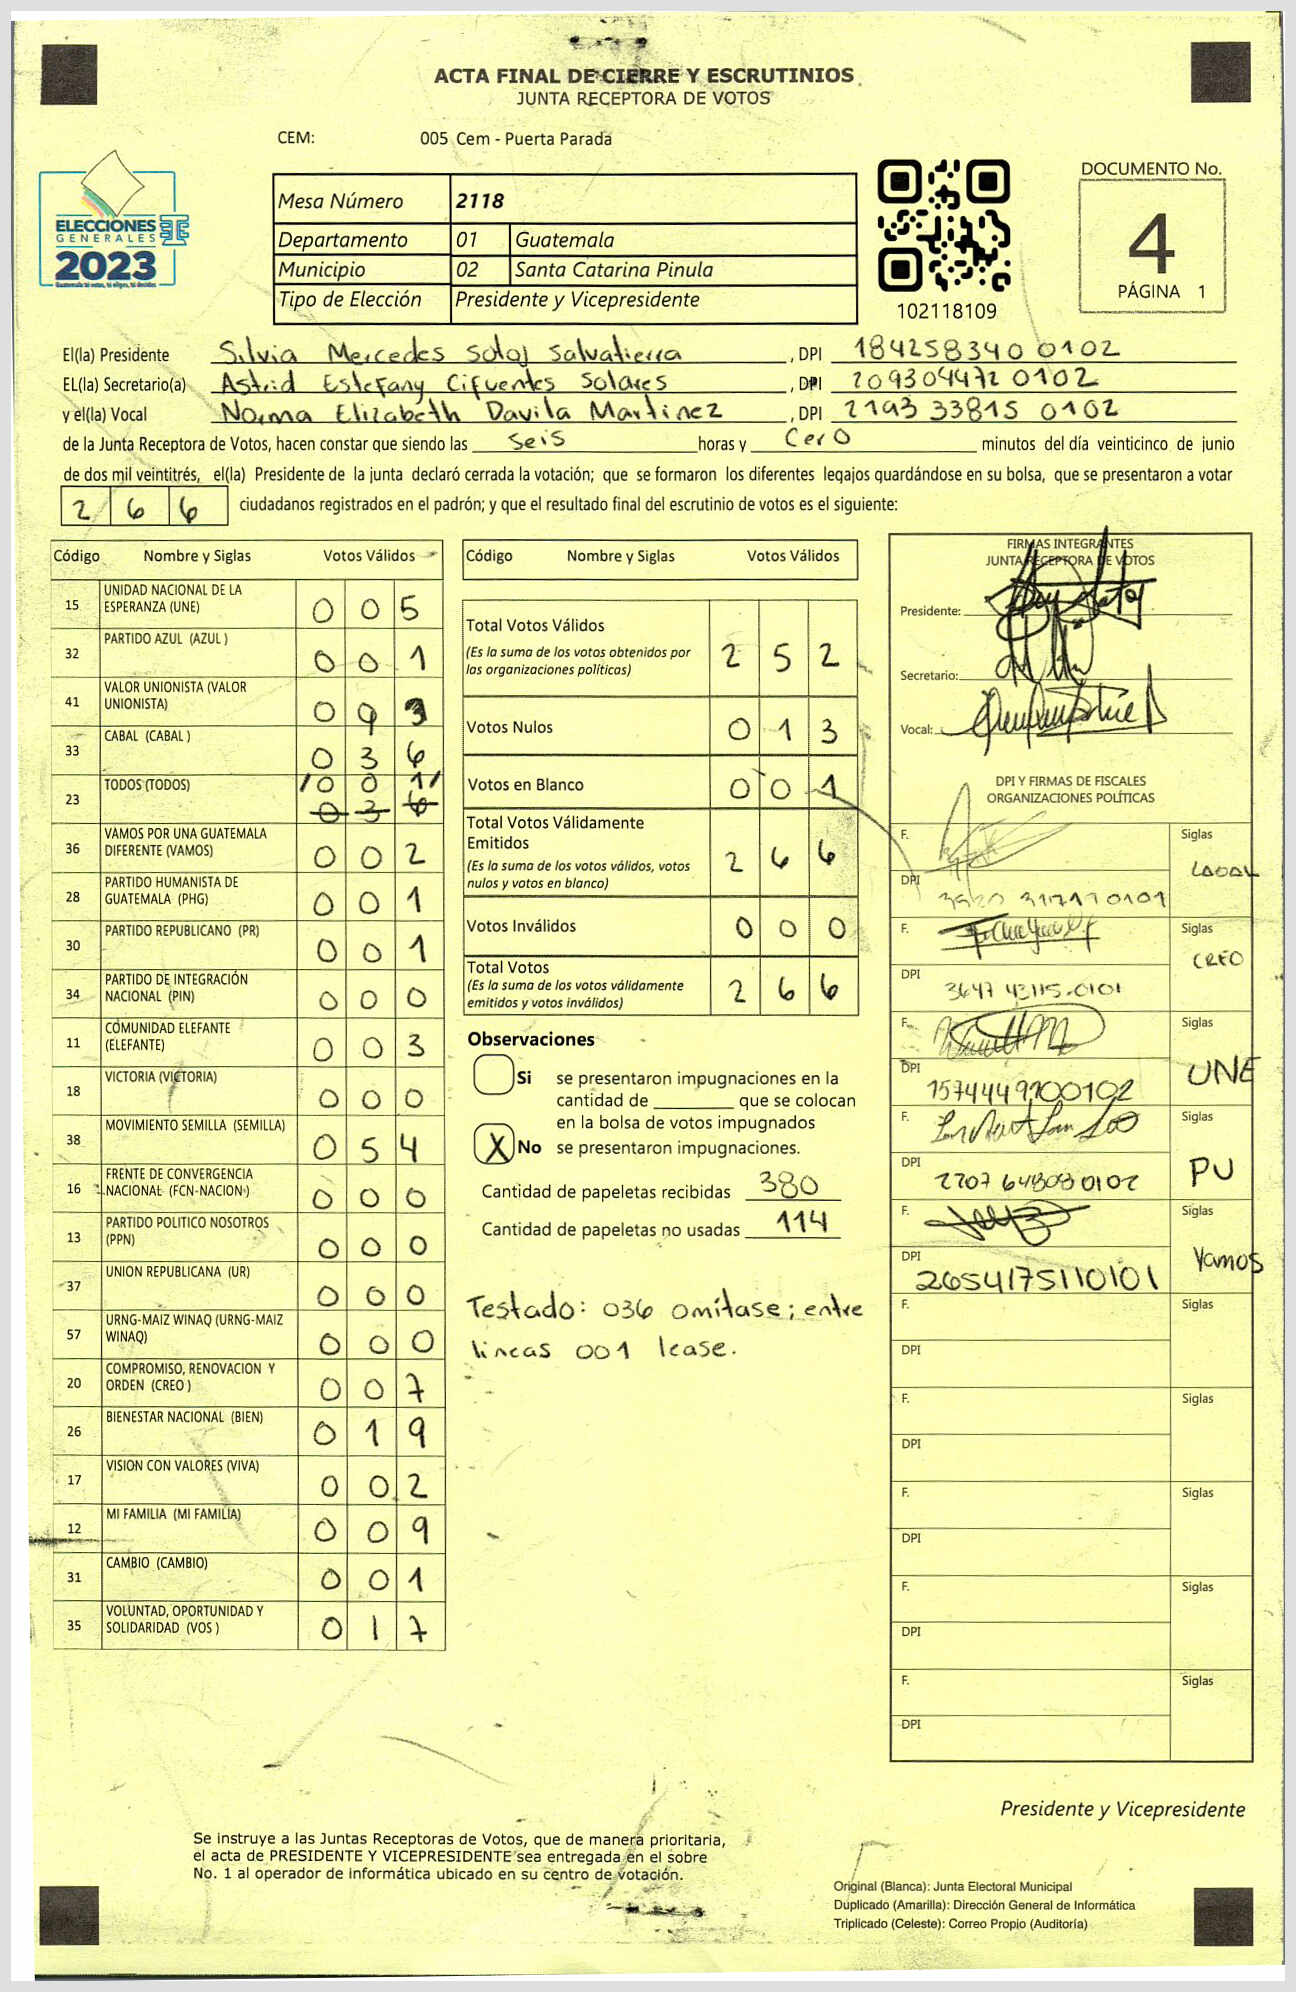 ACTA FINAL DE CIERRE Y ESCRUTINIOS
JUNTA RECEPTORA DE VOTOS
CEM: 005 Cem - Puerta Parada
ELECCIONES
GENERALES
2023
Guatemala tú votas, tú eliges, tú decides
Mesa Número 2118
Departamento 01 Guatemala
Municipio 02 Santa Catarina Pinula
Tipo de Elección Presidente y Vicepresidente
102118109
DOCUMENTO No.
4
PÁGINA 1
El(la) Presidente Silvia Mercedes Sotoj Salvatierra , DPI 184258340 0102
EL(la) Secretario(a) Astrid Estefany Cifuentes Solares , DPI 209304472 0102
y el(la) Vocal Norma Elizabeth Davila Martinez , DPI 2193 33815 0102
de la Junta Receptora de Votos, hacen constar que siendo las seis horas y cero minutos del día veinticinco de junio
de dos mil veintitrés, el(la) Presidente de la junta declaró cerrada la votación; que se formaron los diferentes legajos guardándose en su bolsa, que se presentaron a votar
266 ciudadanos registrados en el padrón; y que el resultado final del escrutinio de votos es el siguiente:
Código Nombre y Siglas Votos Válidos
15 UNIDAD NACIONAL DE LA ESPERANZA (UNE) 0 0 5
32 PARTIDO AZUL (AZUL ) 0 0 1
41 VALOR UNIONISTA (VALOR UNIONISTA) 0 9 3
33 CABAL (CABAL ) 0 3 6
23 TODOS (TODOS) /0 0 1/
0 3 6
36 VAMOS POR UNA GUATEMALA DIFERENTE (VAMOS) 0 0 2
28 PARTIDO HUMANISTA DE GUATEMALA (PHG) 0 0 1
30 PARTIDO REPUBLICANO (PR) 0 0 1
34 PARTIDO DE INTEGRACIÓN NACIONAL (PIN) 0 0 0
11 COMUNIDAD ELEFANTE (ELEFANTE) 0 0 3
18 VICTORIA (VICTORIA) 0 0 0
38 MOVIMIENTO SEMILLA (SEMILLA) 0 5 4
16 FRENTE DE CONVERGENCIA NACIONAL (FCN-NACION) 0 0 0
13 PARTIDO POLITICO NOSOTROS (PPN) 0 0 0
37 UNION REPUBLICANA (UR) 0 0 0
57 URNG-MAIZ WINAQ (URNG-MAIZ WINAQ) 0 0 0
20 COMPROMISO, RENOVACION Y ORDEN (CREO ) 0 0 7
26 BIENESTAR NACIONAL (BIEN) 0 1 9
17 VISION CON VALORES (VIVA) 0 0 2
12 MI FAMILIA (MI FAMILIA) 0 0 9
31 CAMBIO (CAMBIO) 0 0 1
35 VOLUNTAD, OPORTUNIDAD Y SOLIDARIDAD (VOS ) 0 1 7
Código Nombre y Siglas Votos Válidos
Total Votos Válidos 2 5 2
(Es la suma de los votos obtenidos por
las organizaciones políticas)
Votos Nulos 0 1 3
Votos en Blanco 0 0 1
Total Votos Válidamente
Emitidos 2 6 6
(Es la suma de los votos válidos, votos
nulos y votos en blanco)
Votos Inválidos 0 0 0
Total Votos 2 6 6
(Es la suma de los votos válidamente
emitidos y votos inválidos)
Observaciones
Si se presentaron impugnaciones en la
cantidad de ________ que se colocan
en la bolsa de votos impugnados
X No se presentaron impugnaciones.
Cantidad de papeletas recibidas 380
Cantidad de papeletas no usadas 114
Testado: 036 omitase; entre
lineas 001 lease.
FIRMAS INTEGRANTES
JUNTA RECEPTORA DE VOTOS
Presidente:
Secretario:
Vocal:
DPI Y FIRMAS DE FISCALES
ORGANIZACIONES POLÍTICAS
F. Siglas
DPI
F. Siglas CREO
DPI 3647 43115.0101
F. Siglas UNE
DPI 1574449200102
F. Siglas PU
DPI 2207 648080102
F. Siglas Vamos
DPI 2654175110101
F. Siglas
DPI
F. Siglas
DPI
F. Siglas
DPI
F. Siglas
DPI
F. Siglas
DPI
Presidente y Vicepresidente
Se instruye a las Juntas Receptoras de Votos, que de manera prioritaria,
el acta de PRESIDENTE Y VICEPRESIDENTE sea entregada en el sobre
No. 1 al operador de informática ubicado en su centro de votación.
Original (Blanca): Junta Electoral Municipal
Duplicado (Amarilla): Dirección General de Informática
Triplicado (Celeste): Correo Propio (Auditoría)